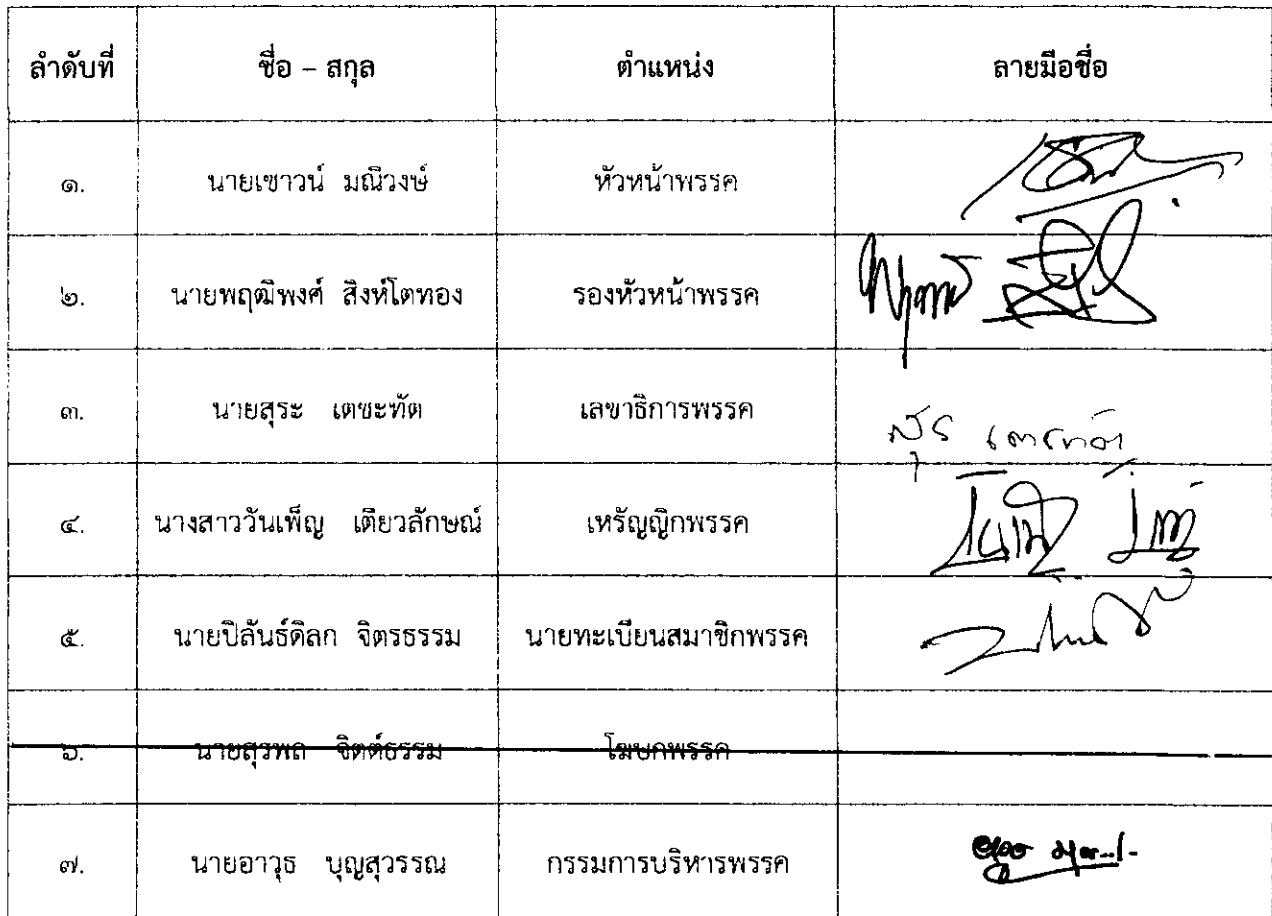 ลำดับที่ ชื่อ – สกุล ตำแหน่ง ลายมือชื่อ
๑. นายเชาวน์ มณีวงษ์ หัวหน้าพรรค
๒. นายพฤฒิพงศ์ สิงห์โตทอง รองหัวหน้าพรรค
๓. นายสุระ เตชะทัต เลขาธิการพรรค
๔. นางสาววันเพ็ญ เตียวลักษณ์ เหรัญญิกพรรค
๕. นายปิลันธ์ดิลก จิตรธรรม นายทะเบียนสมาชิกพรรค
๖. นายสุรพล จิตต์ธรรม โฆษกพรรค
๗. นายอาวุธ บุญสุวรรณ กรรมการบริหารพรรค